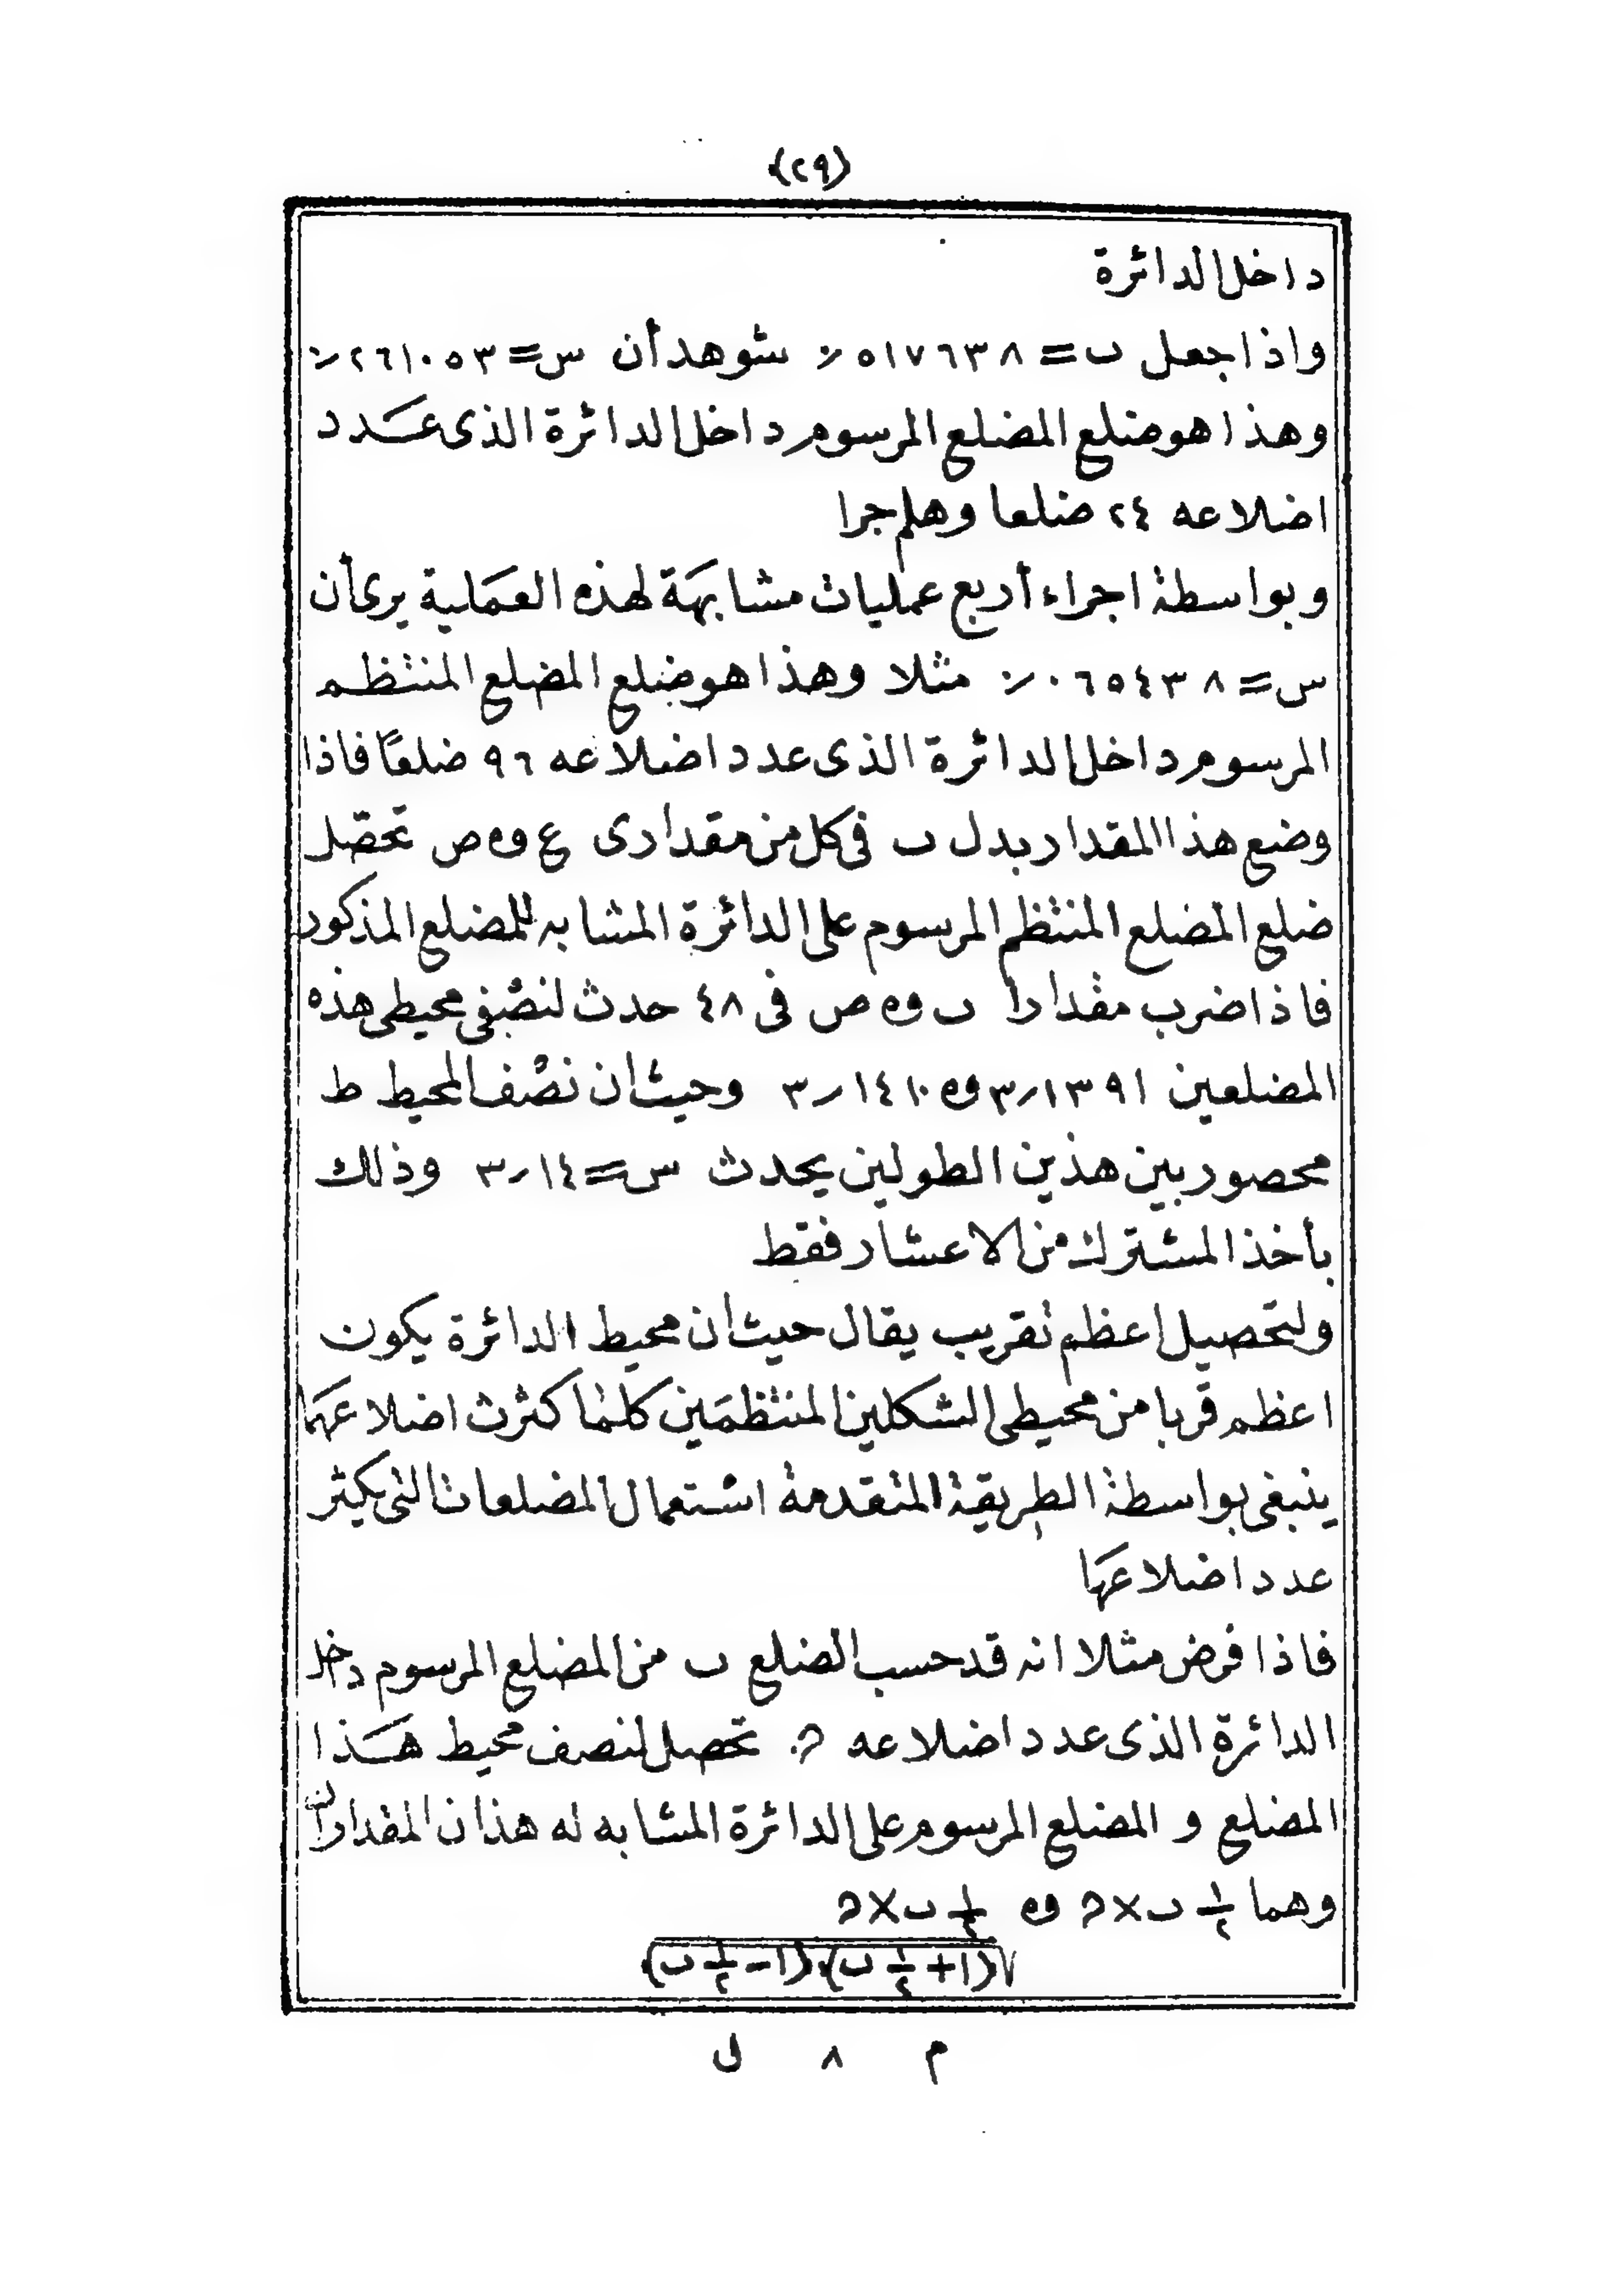 (٢٩)
داخل الدائرة
واذا جعل ب = ٥١٧٦٣٨٪ شوهد أن س = ٢٦١٠٥٣٪
وهذا هو ضلع المضلع المرسوم داخل الدائرة الذى عدد
اضلاعه ٢٤ ضلعا وهلم جرا
وبواسطة اجراء أربع عمليات مشابهة لهذه العملية يرى أن
س = ٠٦٥٤٣٨٪ مثلا وهذا هو ضلع المضلع المنتظم
المرسوم داخل الدائرة الذى عدد اضلاعه ٩٦ ضلعًا فاذا
وضع هذا المقدار بدل ب فى كل من مقدارى ع و ص تحصّل
ضلع المضلع المنتظم المرسوم على الدائرة المشابه للمضلع المذكور
فاذا ضرب مقدارا ب و ص فى ٤٨ حدث لنصفى محيطى هذه
المضلعين ٣٫١٣٩١ و ٣٫١٤١٠ وحيث ان نصف المحيط ط
محصور بين هذين الطولين يحدث س = ٣٫١٤ وذلك
بأخذ المشترك من الاعشار فقط
ولتحصيل اعظم تقريب يقال حيث ان محيط الدائرة يكون
اعظم قربا من محيطى الشكلين المنتظمين كلما كثرت اضلاعهما
ينبغى بواسطة الطريقة المتقدمة استعمال المضلعات التى يكثر
عدد اضلاعها
فاذا فرض مثلا انه قد حسب الضلع ب من المضلع المرسوم داخل
الدائرة الذى عدد اضلاعه ﮦ تحصل لنصف محيط هذا
المضلع و المضلع المرسوم على الدائرة المشابه له هذان المقداران
وهما ١/٢ ب × ﮦ و ١/٢ ب × ﮦ
√(١ + ١/٢ ب).(١ - ١/٢ ب)
م ٨ ل